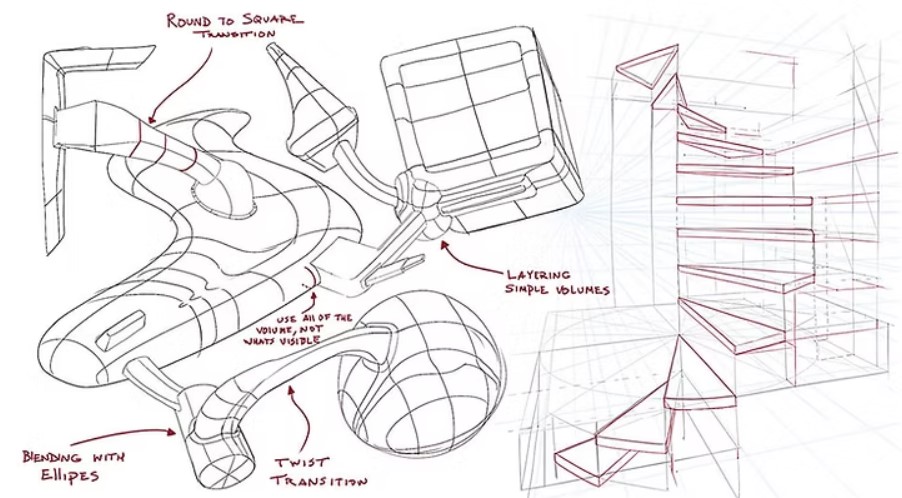 ROUND TO SQUARE
TRANSITION
LAYERING
SIMPLE VOLUMES
USE All OF THE
VOLUME, NOT
WHATS VISIBLE
BlENDING WITH
EllIPES
TWIST
TRANSITION